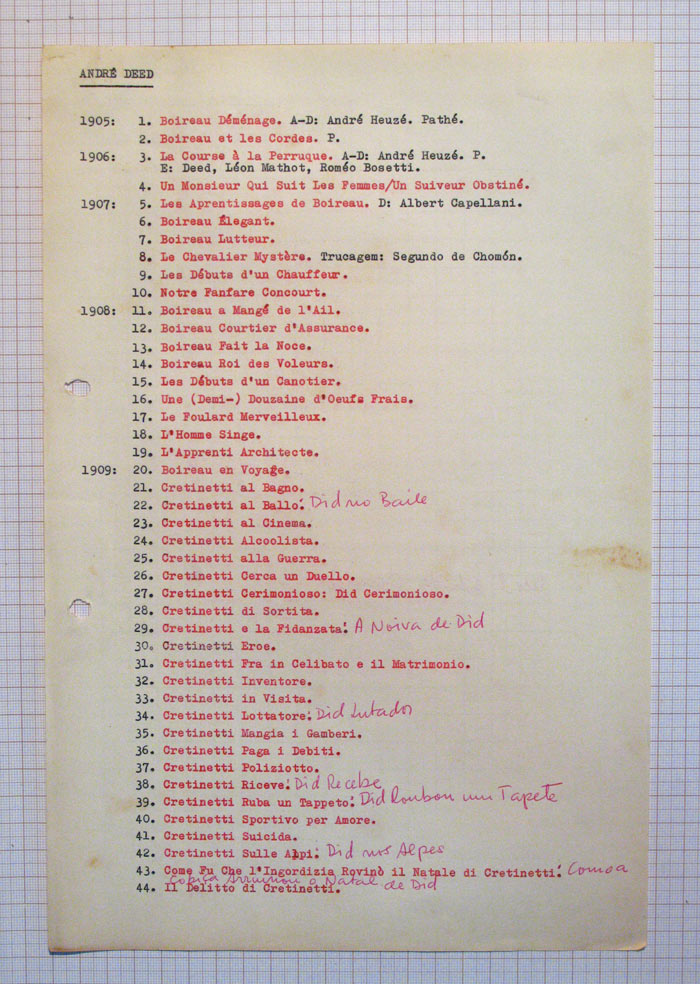 ANDRÉ DEED
1905: 1. Boireau Déménage. A-D: André Heuzé. Pathé.
2. Boireau et les Cordes. P.
1906: 3. La Course à la Perruque. A-D: André Heuzé. P.
E: Deed, Léon Mathot, Roméo Bosetti.
4. Un Monsieur Qui Suit Les Femmes/Un Suiveur Obstiné.
1907: 5. Les Aprentissages de Boireau. D: Albert Capellani.
6. Boireau Élegant.
7. Boireau Lutteur.
8. Le Chevalier Mystère. Trucagem: Segundo de Chomón.
9. Les Débuts d'un Chauffeur.
10. Notre Fanfare Concourt.
1908: 11. Boireau a Mangé de l'Ail.
12. Boireau Courtier d'Assurance.
13. Boireau Fait la Noce.
14. Boireau Roi des Voleurs.
15. Les Débuts d'un Canotier.
16. Une (Demi-) Douzaine d'Oeufs Frais.
17. Le Foulard Merveilleux.
18. L'Homme Singe.
19. L'Apprenti Architecte.
1909: 20. Boireau en Voyage.
21. Cretinetti al Bagno.
22. Cretinetti al Ballo: Did no Baile
23. Cretinetti al Cinema.
24. Cretinetti Alcoolista.
25. Cretinetti alla Guerra.
26. Cretinetti Cerca un Duello.
27. Cretinetti Cerimonioso: Did Cerimonioso.
28. Cretinetti di Sortita.
29. Cretinetti e la Fidanzata: A Noiva de Did
30. Cretinetti Eroe.
31. Cretinetti Fra in Celibato e il Matrimonio.
32. Cretinetti Inventore.
33. Cretinetti in Visita.
34. Cretinetti Lottatore: Did Lutador
35. Cretinetti Mangia i Gamberi.
36. Cretinetti Paga i Debiti.
37. Cretinetti Poliziotto.
38. Cretinetti Riceve: Did Recebe
39. Cretinetti Ruba un Tappeto: Did Roubou um Tapete
40. Cretinetti Sportivo per Amore.
41. Cretinetti Suicida.
42. Cretinetti Sulle Alpi: Did nos Alpes
43. Come Fu Che l'Ingordizia Rovinò il Natale di Cretinetti: Como a
Cobiça Arruinou o Natal de Did
44. Il Delitto di Cretinetti.